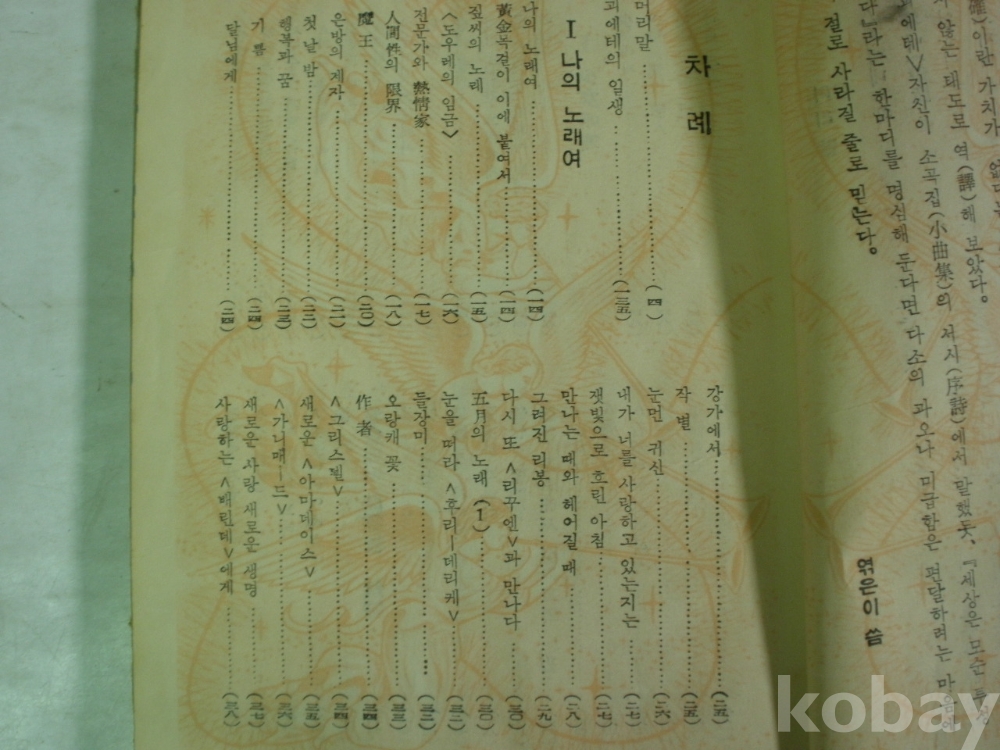 않는 태도로 역(譯)해 보았다。
자신이 소곡집(小曲集)의 서시(序詩)에서 말했듯、『세상은 모순
다』라는 한마디를 명심해 둔다면 다소의 과오나 미급함은 편달하려는 마음에
절로 사라질 줄로 믿는다。
엮은이 씀
차례
머리말 (四)
괴에테의 일생 (一三五)
I 나의 노래여
나의 노래여 (一四)
黃金목걸이 이에 붙여서 (一四)
짚씨의 노래 (一五)
<도우레의 임금> (一六)
전문가와 熱情家 (一七)
人間性의 限界 (一八)
魔王 (二〇)
은방의 제자 (二一)
첫날밤 (二二)
행복과 꿈 (二三)
기쁨 (二四)
달님에게 (二四)
강가에서 (二五)
작별 (二五)
눈먼 귀신 (二六)
내가 너를 사랑하고 있는지는 (二七)
잿빛으로 흐린 아침 (二七)
만나는 때와 헤어질 때 (二八)
그려진 리봉 (二九)
다시 또 <리꾸엔>과 만나다 (三〇)
五月의 노래 (1) (三〇)
눈을 떠라 <후리ー데리케> (三二)
들장미 (三二)
오랑캐 꽃 (三三)
作者 (三四)
<그리스텔> (三四)
새로운 <아마데이스> (三五)
<가니매ー드> (三六)
새로운 사랑 새로운 생명 (三七)
사랑하는 <배린데>에게 (三八)
kobay